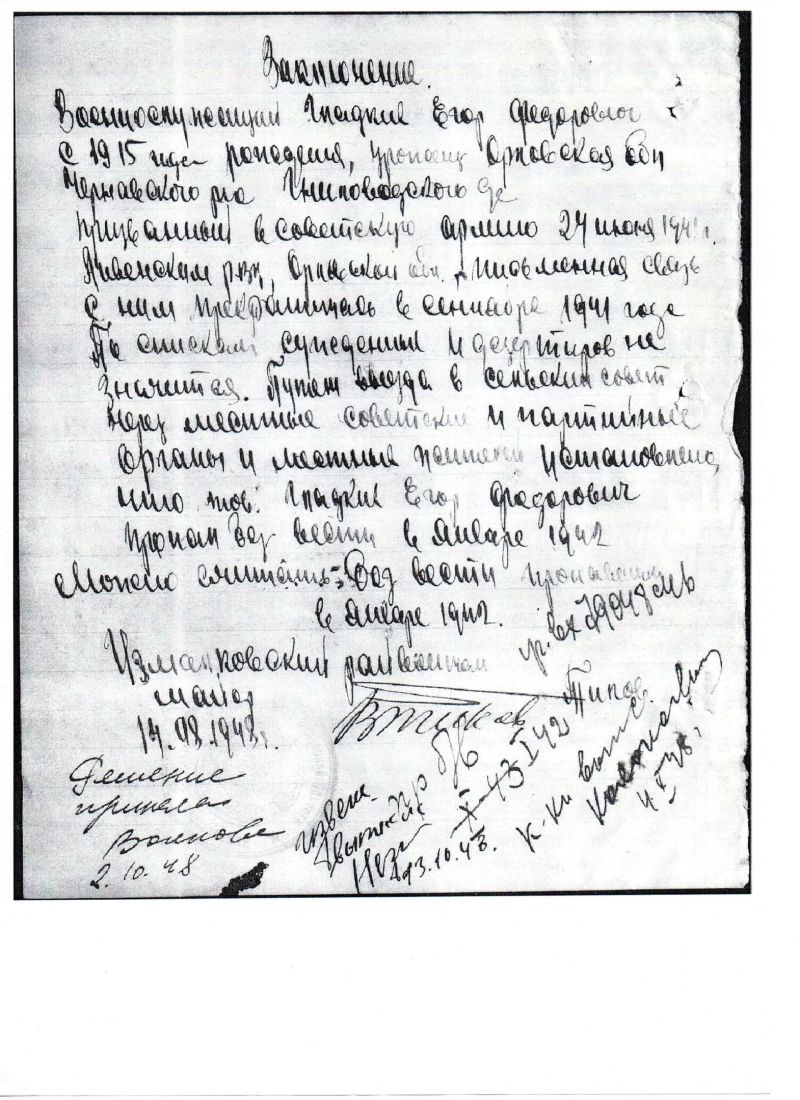 Заключение.
Военнослужащий Гладких Егор Федорович
с 1915 года рождения, Орловская обл
Чернавского р-на Гниловодского
призванный в советскую армию 24 июня 1941 г.
Ливенским рвк, Орловской обл., письменная связь
с ним прекратилась в сентябре 1941 года
По спискам осужденных и дезертиров не
значится. Путем выезда в сельский совет
через местные советские и партийные
органы и местных жителей установлено,
что тов. Гладких Егор Федорович
пропал без вести в январе 1942
Можно считать без вести пропавшим
в январе 1942.
вх 79948
Измалковский райвоенком
майор
14.08.1948 г.
Решение
приняла
Волкова
2.10.48
извещ.
13.10.48.